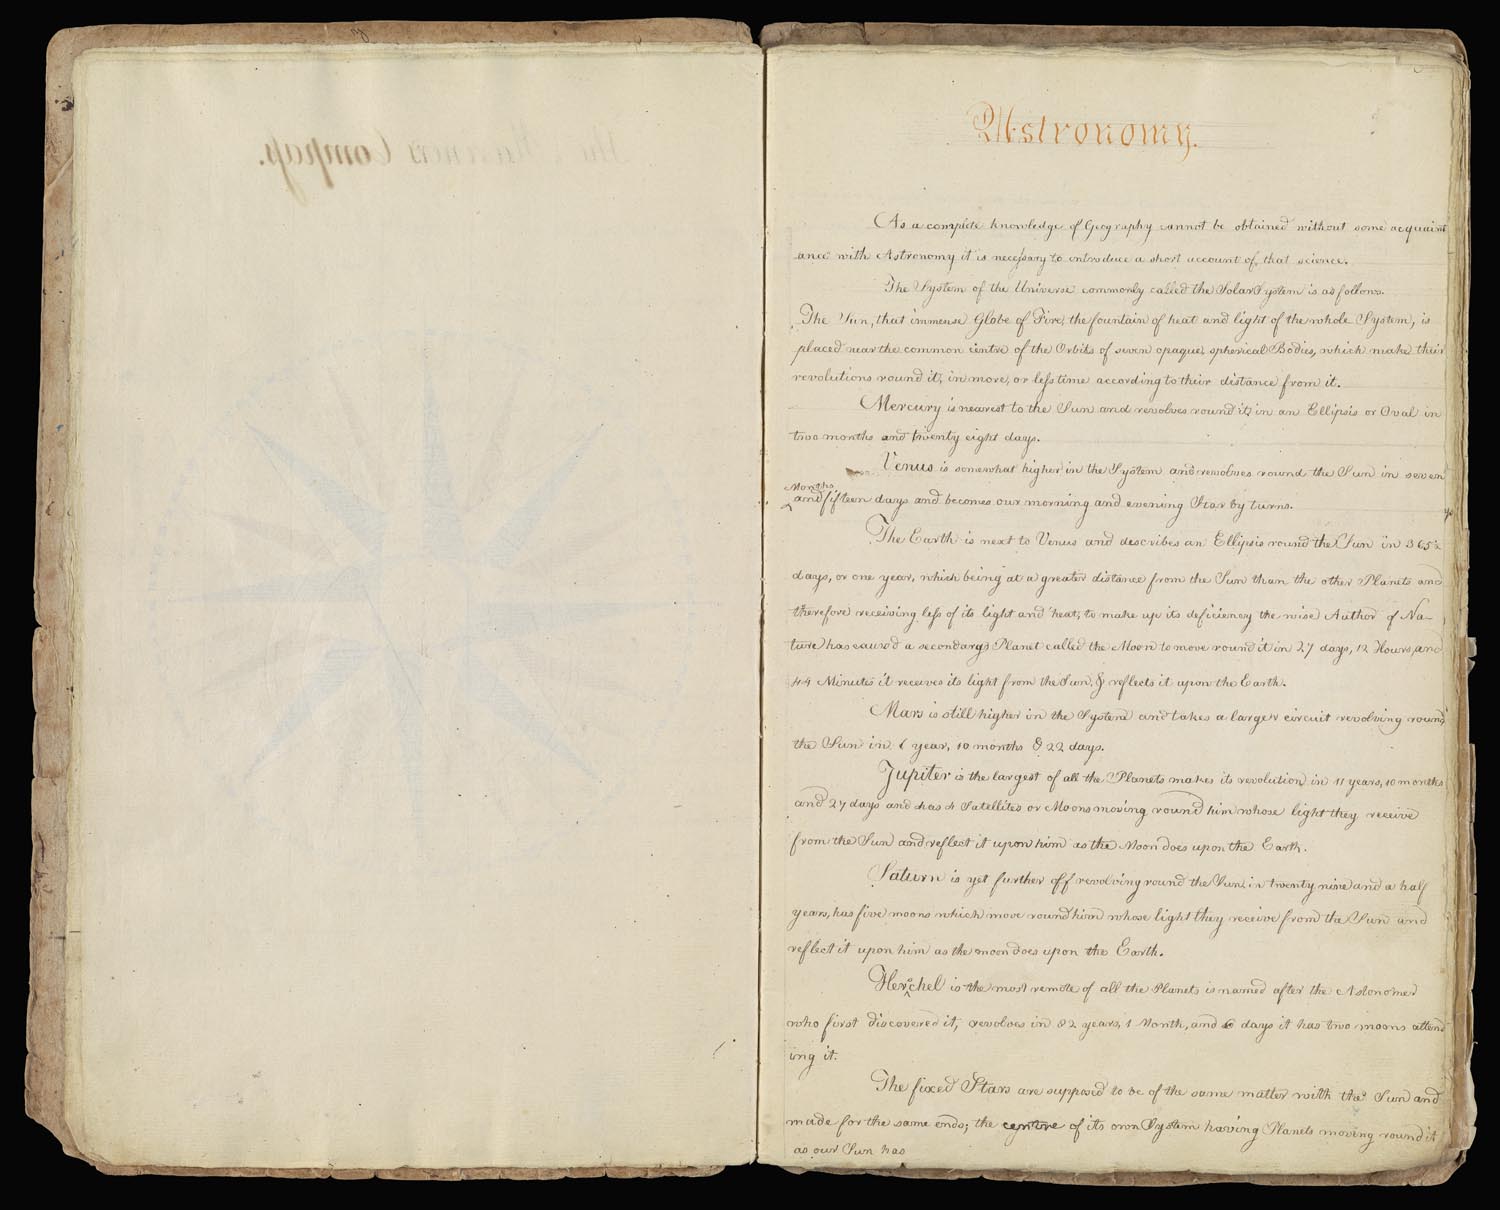 The Mariners Compass.
Astronomy.
As a complete knowledge of Geography cannot be obtained without some acquaint
ance with Astronomy it is necessary to introduce a short account of that science.
The System of the Universe commonly called the Solar System is as follows.
The Sun, that immense Globe of Fire, the fountain of heat and light of the whole System, is
placed near the common centre of the Orbits of seven opaque, spherical Bodies, which make their
revolutions round it, in more, or less time according to their distance from it.
Mercury is nearest to the Sun and revolves round it, in an Ellipsis or Oval in
two months and twenty eight days.
Venus is somewhat higher in the System and revolves round the Sun in seven
Months
and fifteen days and becomes our morning and evening Star by turns.
The Earth is next to Venus and describes an Ellipsis round the Sun in 365¼
days, or one year, which being at a greater distance from the Sun than the other Planets and
therefore receiving less of its light and heat, to make up its deficiency the wise Author of Na-
ture has caused a secondary Planet called the Moon to move round it in 27 days, 12 Hours, and
44 Minutes it receives its light from the Sun, & reflects it upon the Earth.
Mars is still higher in the System and takes a larger circuit revolving round
the Sun in 1 year, 10 months & 22 days.
Jupiter is the largest of all the Planets makes its revolution in 11 years, 10 months
and 27 days and has 4 Satellites or Moons moving round him whose light they receive
from the Sun and reflect it upon him as the Moon does upon the Earth.
Saturn is yet further off revolving round the Sun, in twenty nine and a half
years, has five moons which move round him whose light they receive from the Sun and
reflect it upon him as the moon does upon the Earth.
Herschel is the most remote of all the Planets is named after the Astonomer
who first discovered it, revolves in 82 years, 1 Month, and 6 days it has two moons attend
ing it.
The fixed Stars are supposed to be of the same matter with the Sun and
made for the same ends; the centre of its own System having Planets moving round it
as our Sun has